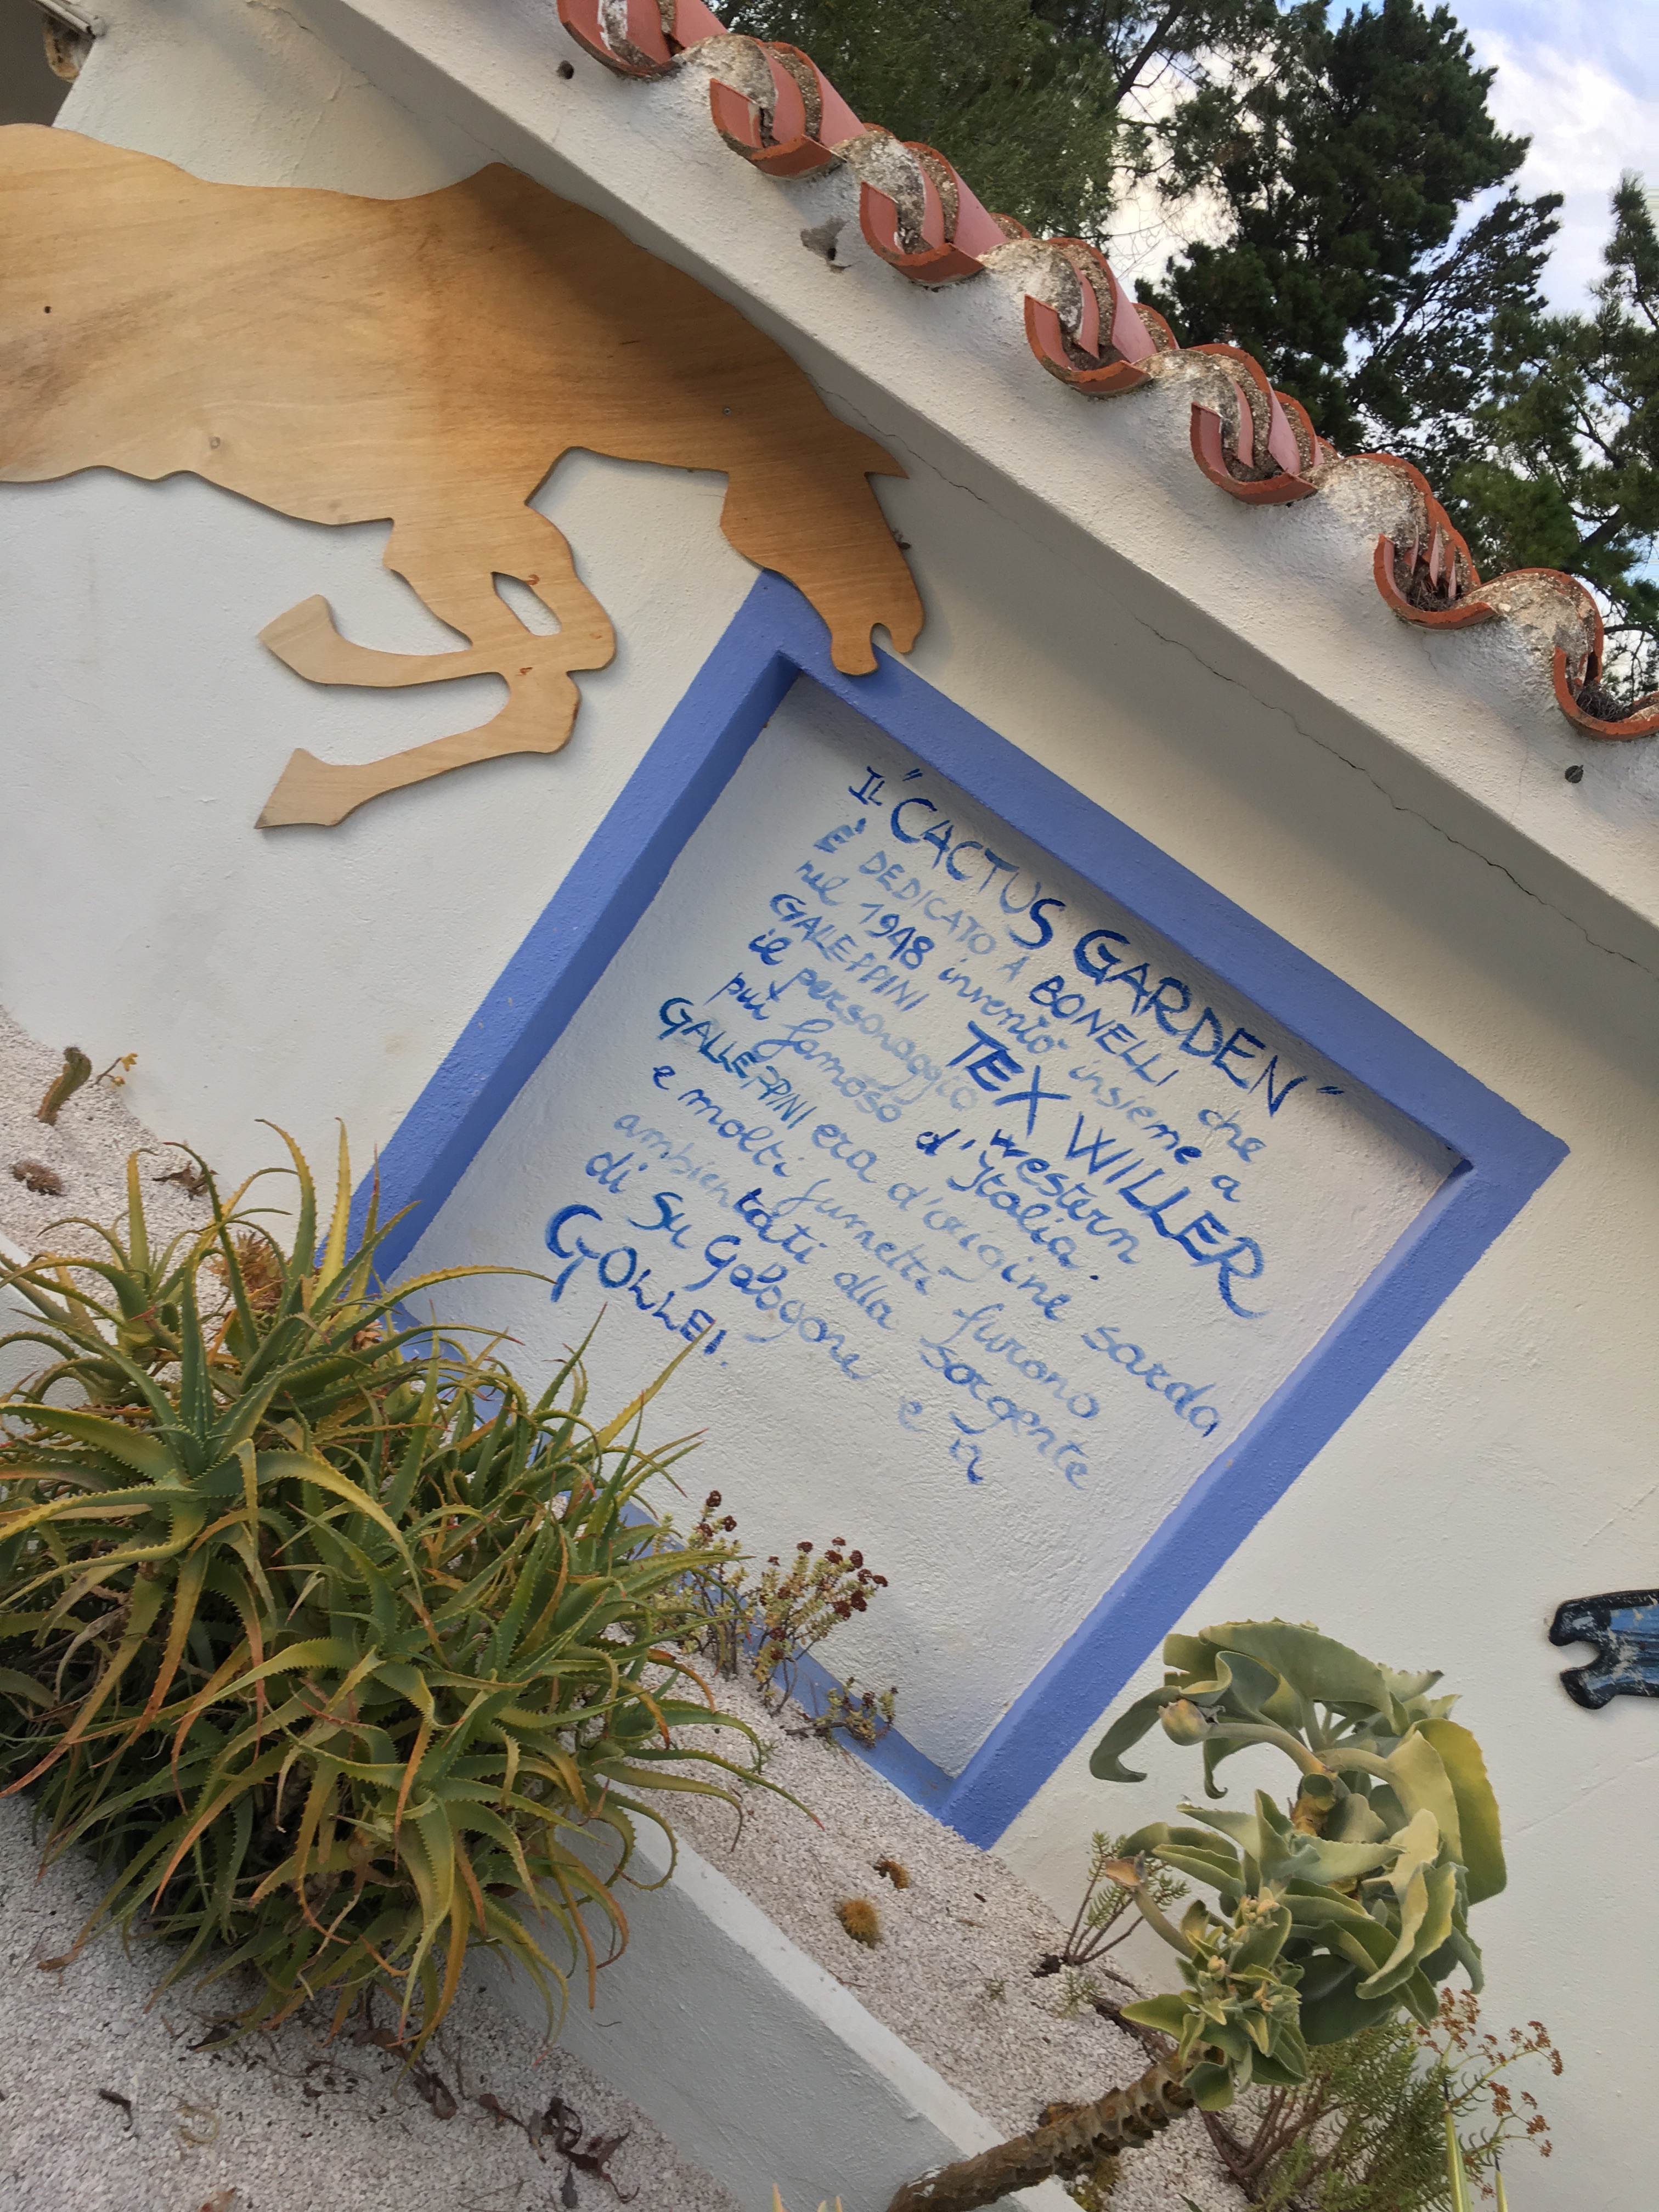 IL "CACTUS GARDEN"
È DEDICATO A BONELLI che
nel 1948 inventò insieme a
GALEPPINI TEX WILLER
il personaggio western
più famoso d'Italia.
GALLEPPINI era d'origine sarda
e molti fumetti furono
ambientati alla sorgente
di Su Gologone e a
GOLLEI.